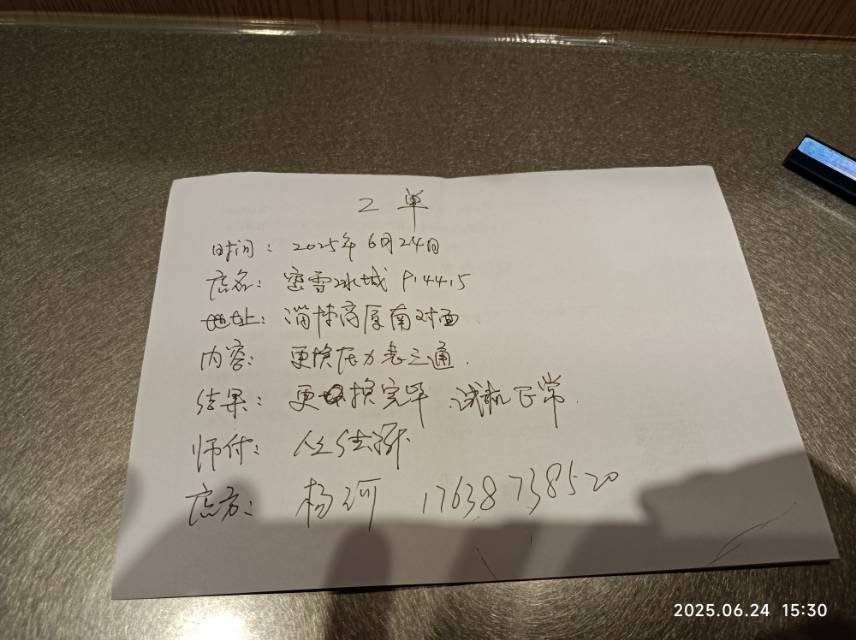 2单
时间：2025年6月24日
店名：蜜雪冰城 P14415
地址：淄博高原南对面
内容：更换压力表三通.
结果：更换完毕 试机正常.
师付：
店方：杨河 17638738520
2025.06.24 15:30